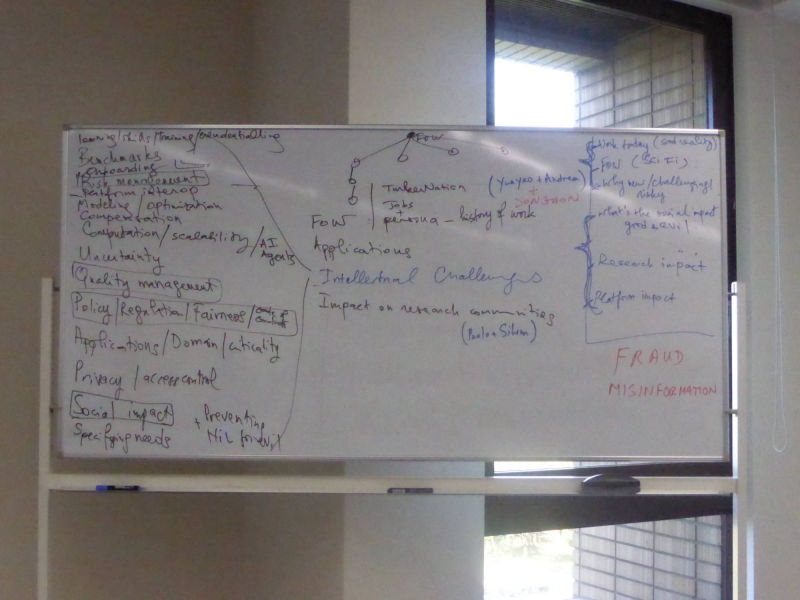 learning/skills/training/credentialling
Benchmarks
Onboarding
Risk management
Platform interop
Modeling/optimization
Compensation
Computation/scalability/AI Agents
Uncertainty
Quality management
Policy/Regulation/Fairness/
Applications/Domain/criticality
Privacy/access control
Social impact
Specifying needs
+ Preventing
FoW
TurkerNation
Jobs
+
persona - history of work
(Yunyao + Andrea)
+
FoW
Applications
Intellectual Challenges
Impact on research communities
(Paolo + Silvia)
Work today (sad reality)
FoW (Sci Fi)
Why new/challenging/
risky
What's the social impact
good & evil
Research impact
Platform impact
FRAUD
MISINFORMATION